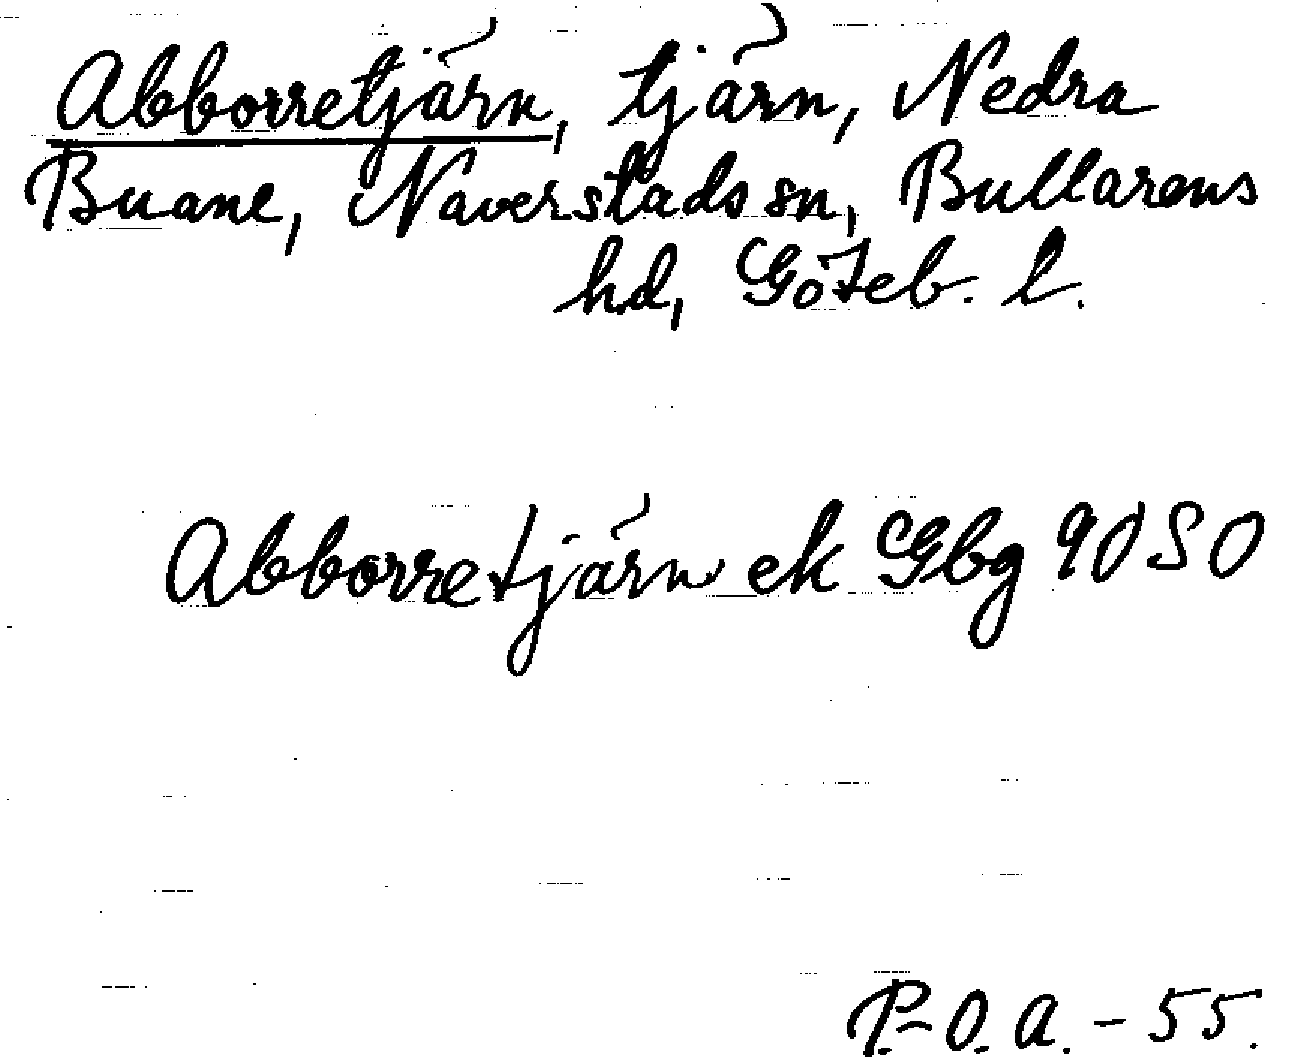 Abborretjärn, tjärn, Nedra
Buane, Naverstads sn, Bullarens
hd, Göteb. l.
Abborretjärn ek Gbg 90 S0
P.-O. A. - 55.